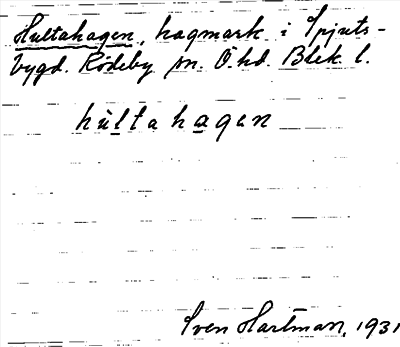 Hultahagen, hagmark i Spjuts-
bygd. Rödeby sn. Ö. hd. Blek. l.
hùltahagen
Sven Hartman, 1931